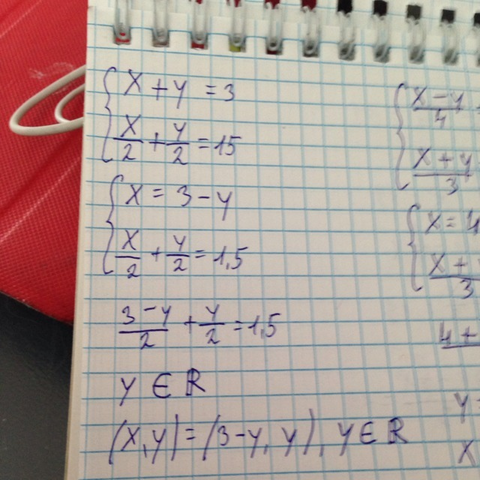 x + y = 3
x/2 + y/2 = 15
x = 3 - y
x/2 + y/2 = 1,5
(3-y)/2 + y/2 = 1,5
y ∈ R
(x,y) = (3-y, y), y ∈ R
(x-y)/4
(x+y)/3
x = 4
(x+)/3
4 +
y
x